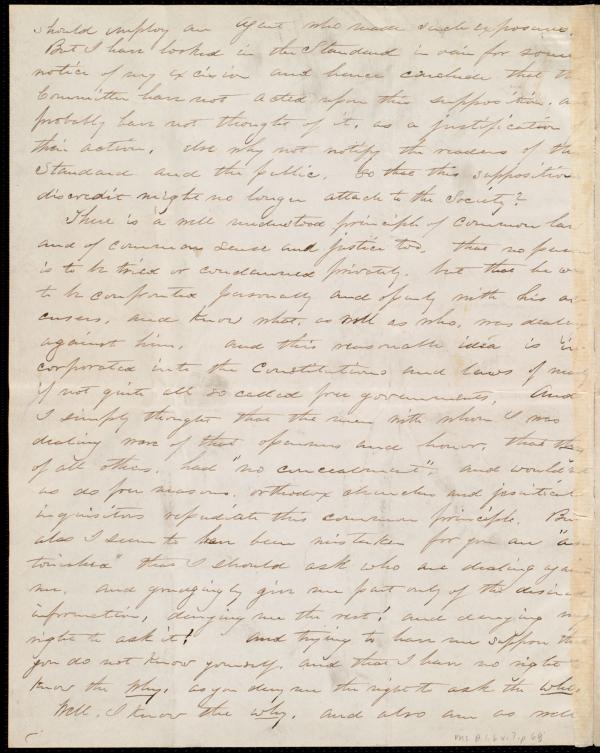 should employ an agent who made such exposures.
But I have looked in the Standard in vain for some
notice of my excision and hence conclude that the
Committee have not acted upon this supposition, and
probably have not thought of it, as a justification
their action. Else why not notify the readers of the
Standard and the public, so that this supposition
discredit might no longer attach to the Society?
There is a well understood principle of common law
and of common sense and justice too, that no person
is to be tried or condemned privately, but that he
to be confronted personally and openly with his ac-
cusers, and know what, as well as who, was dealing
against him, and this reasonable idea is in-
corporated into the Constitutions and laws of nearly
if not quite all so called free governments, And
I simply thought that the men with whom I was
dealing were of that openness and honor, that they
of all others, had "no concealment", and would
as do free masons, orthodox churches and jesuitical
inquisitors repudiate this common principle. But
alas I seem to have been mistaken for you are "as-
tonished" that I should ask who are dealing against
me, and grudgingly give me part only of the desired
information, denying me the rest! and denying my
right to ask it! and trying to have me suppose that
you do not know yourself, and that I have no right
know the why, as you deny me the right to ask the who.
Well, I know the why, and also am as well
Ms. A.1.6 v.7, p.68